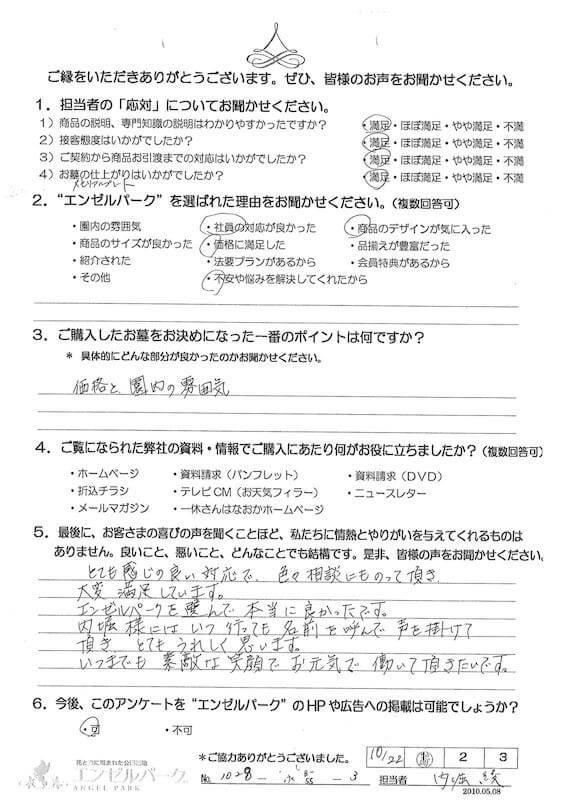 ご縁をいただきありがとうございます。ぜひ、皆様のお声をお聞かせください。
1．担当者の「応対」についてお聞かせください。
1）商品の説明、専門知識の説明はわかりやすかったですか？ ・満足・ほぼ満足・やや満足・不満
2）接客態度はいかがでしたか？ ・満足・ほぼ満足・やや満足・不満
3）ご契約から商品お引渡までの対応はいかがでしたか？ ・満足・ほぼ満足・やや満足・不満
4）お墓の仕上がりはいかがでしたか？ ・満足・ほぼ満足・やや満足・不満
メモリアルプレート
2．“エンゼルパーク”を選ばれた理由をお聞かせください。（複数回答可）
・園内の雰囲気 ・社員の対応が良かった ・商品のデザインが気に入った
・商品のサイズが良かった ・価格に満足した ・品揃えが豊富だった
・紹介された ・法要プランがあるから ・会員特典があるから
・その他 ・不安や悩みを解決してくれたから
3．ご購入したお墓をお決めになった一番のポイントは何ですか？
* 具体的にどんな部分が良かったのかお聞かせください。
価格と、園内の雰囲気
4．ご覧になられた弊社の資料・情報でご購入にあたり何がお役に立ちましたか？（複数回答可）
・ホームページ ・資料請求（パンフレット） ・資料請求（DVD）
・折込チラシ ・テレビCM（お天気フィラー） ・ニュースレター
・メールマガジン ・一休さんはなおかホームページ
5．最後に、お客さまの喜びの声を聞くことほど、私たちに情熱とやりがいを与えてくれるものは
ありません。良いこと、悪いこと、どんなことでも結構です。是非、皆様の声をお聞かせください。
とても感じの良い対応で、色々相談にものって頂き
大変満足しています。
エンゼルパークを選んで本当に良かったです。
内堀様にはいつ行っても名前を呼んで声を掛けて
頂き、とてもうれしく思います。
いつまでも素敵な笑顔でお元気で働いて頂きたいです。
6．今後、このアンケートを“エンゼルパーク”のHPや広告への掲載は可能でしょうか？
・可 ・不可
花とうに囲まれた公園墓地
エンゼルパーク
ANGEL PARK
*ご協力ありがとうございました。
10/22 1 2 3
No 1028 - - 3
担当者 内堀
2010.05.08